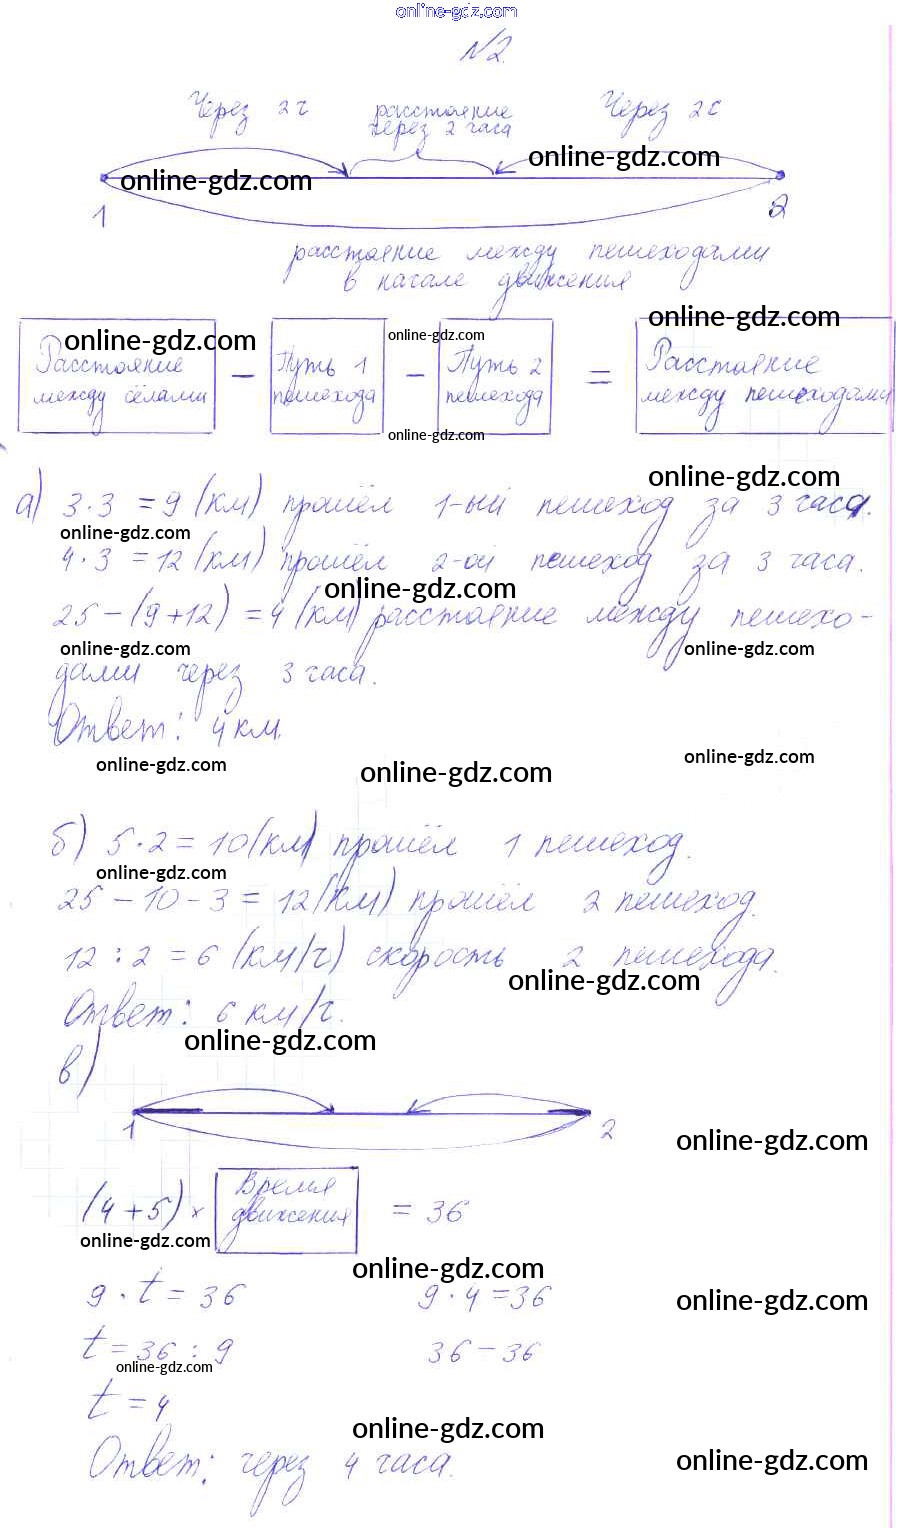 online-gdz.com
№2.
Через 2ч расстояние Через 2ч
через 2 часа
online-gdz.com
online-gdz.com
1 2
расстояние между пешеходами
в начале движения
online-gdz.com online-gdz.com online-gdz.com
Расстояние Путь 1 Путь 2 Расстояние
между сёлами − пешехода − пешехода = между пешеходами
online-gdz.com
online-gdz.com
а) 3·3 = 9 (км) прошёл 1-ый пешеход за 3 часа.
online-gdz.com
4·3 = 12 (км) прошёл 2-ой пешеход за 3 часа.
online-gdz.com
25 − (9+12) = 4 (км) расстояние между пешехо-
online-gdz.com online-gdz.com
дами через 3 часа.
Ответ: 4 км.
online-gdz.com online-gdz.com online-gdz.com
б) 5·2 = 10 (км) прошёл 1 пешеход.
online-gdz.com
25 − 10 − 3 = 12 (км) прошёл 2 пешеход.
12 : 2 = 6 (км/ч) скорость 2 пешехода.
online-gdz.com
Ответ: 6 км/ч.
online-gdz.com
в)
1 2
online-gdz.com
Время
(4+5) × движения = 36
online-gdz.com
online-gdz.com
9 · t = 36 9 · 4 = 36
online-gdz.com
t = 36 : 9 36 − 36
online-gdz.com
t = 4
online-gdz.com
Ответ: через 4 часа.
online-gdz.com